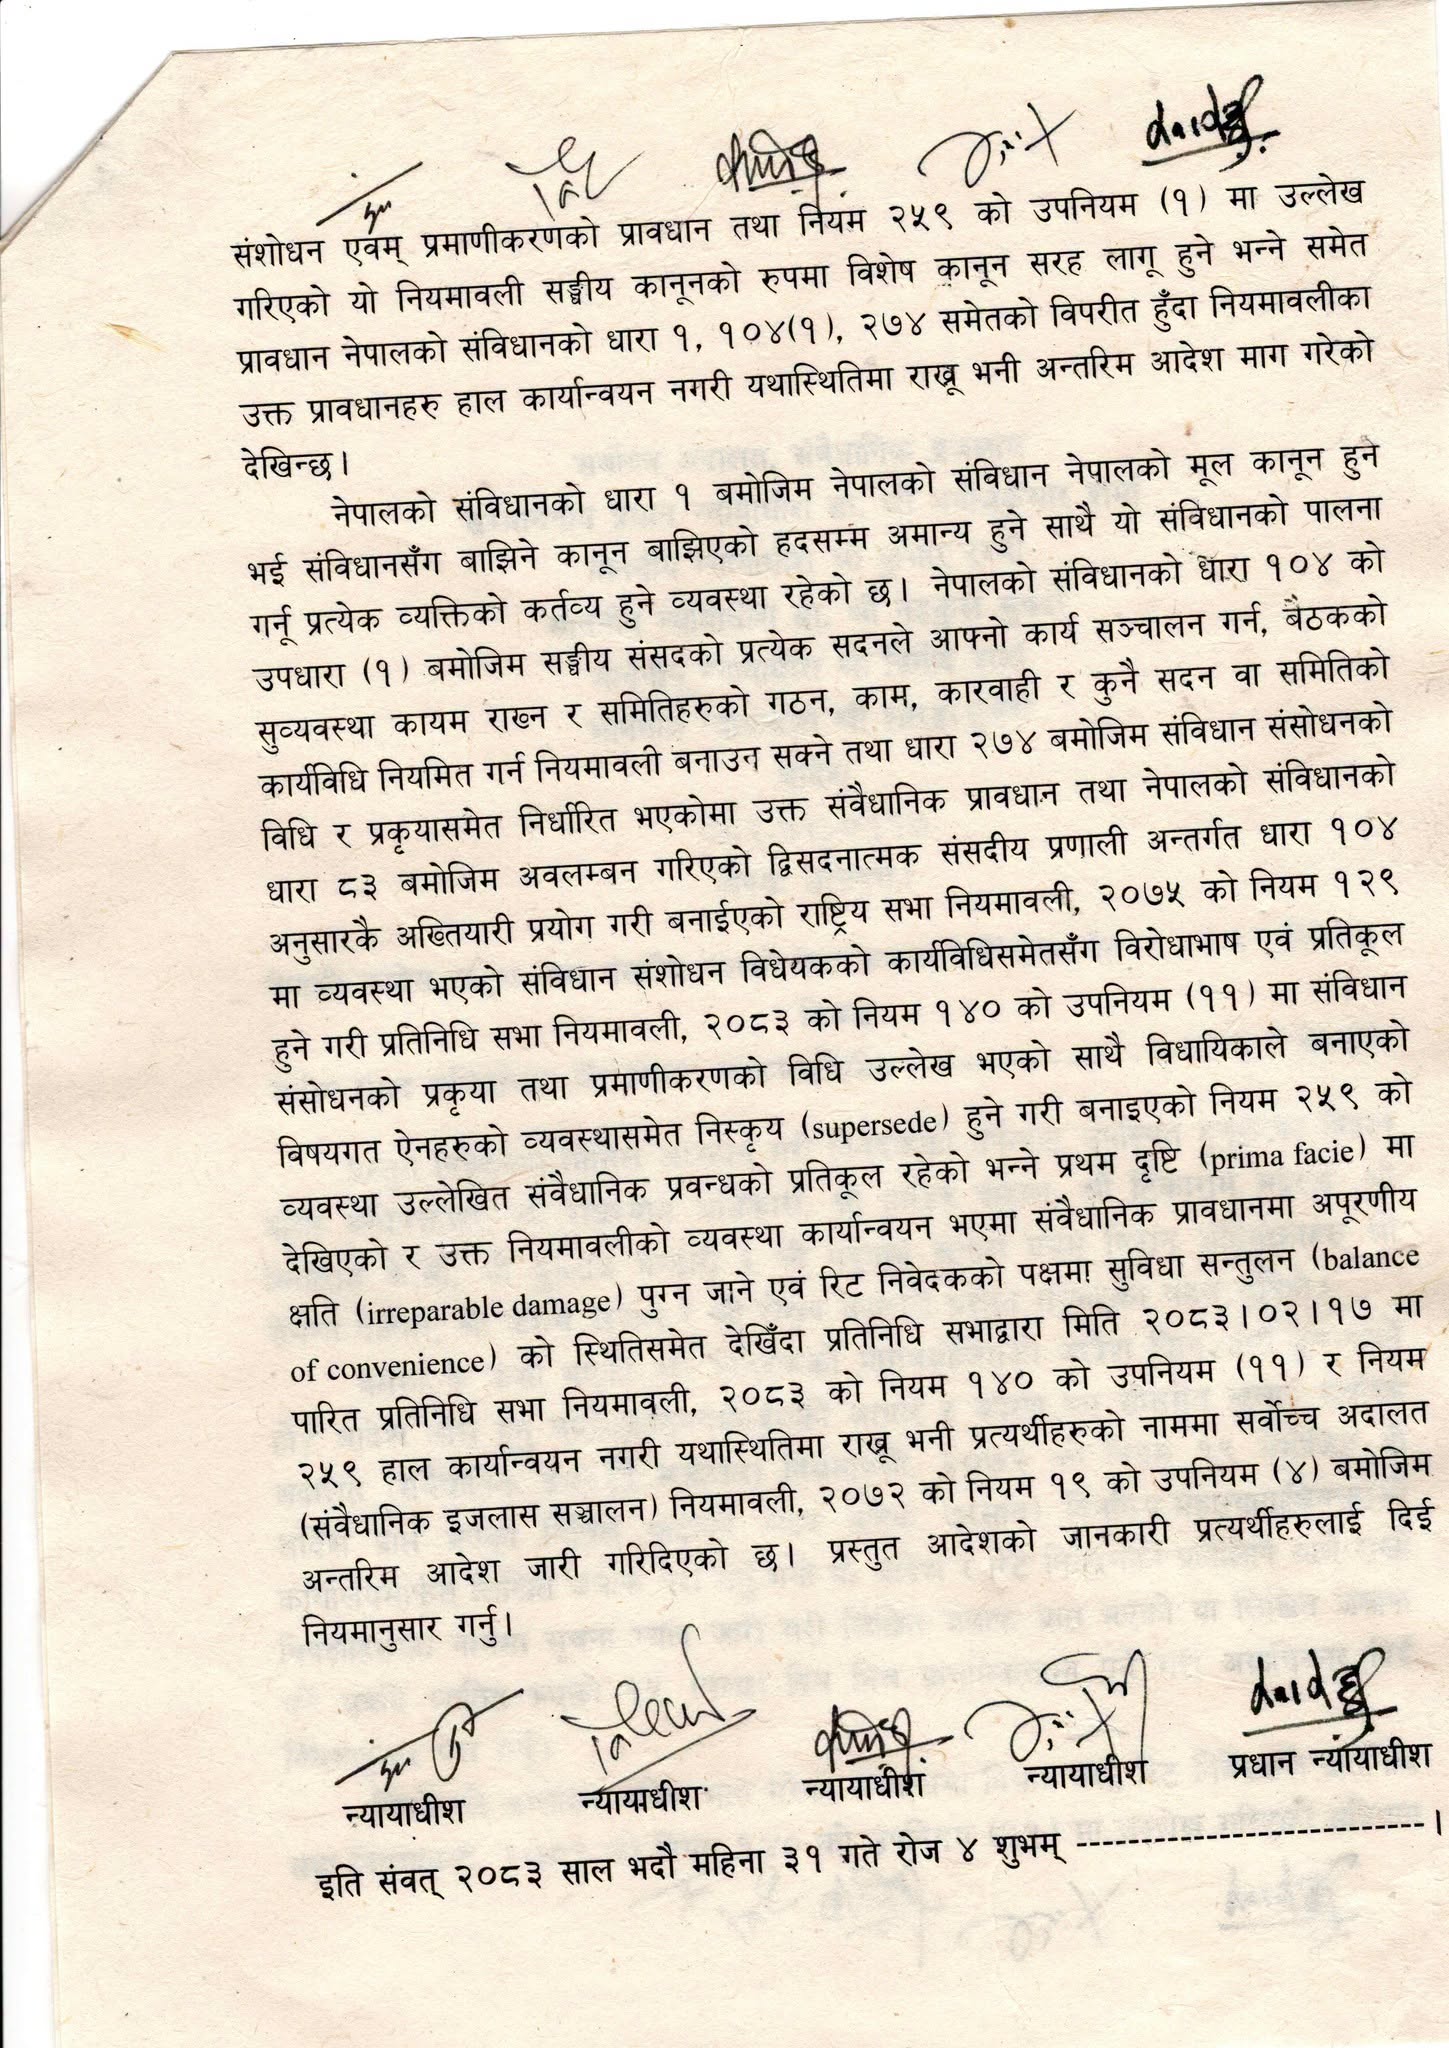 संशोधन एवम् प्रमाणीकरणको प्रावधान तथा नियम २५९ को उपनियम (१) मा उल्लेख
गरिएको यो नियमावली सङ्घीय कानूनको रुपमा विशेष कानून सरह लागू हुने भन्ने समेत
प्रावधान नेपालको संविधानको धारा १, १०४(१), २७४ समेतको विपरीत हुँदा नियमावलीका
उक्त प्रावधानहरु हाल कार्यान्वयन नगरी यथास्थितिमा राख्नू भनी अन्तरिम आदेश माग गरेको
देखिन्छ।
नेपालको संविधानको धारा १ बमोजिम नेपालको संविधान नेपालको मूल कानून हुने
भई संविधानसँग बाझिने कानून बाझिएको हदसम्म अमान्य हुने साथै यो संविधानको पालना
गर्नू प्रत्येक व्यक्तिको कर्तव्य हुने व्यवस्था रहेको छ। नेपालको संविधानको धारा १०४ को
उपधारा (१) बमोजिम सङ्घीय संसदको प्रत्येक सदनले आफ्नो कार्य सञ्चालन गर्न, बैठकको
सुव्यवस्था कायम राख्न र समितिहरुको गठन, काम, कारवाही र कुनै सदन वा समितिको
कार्यविधि नियमित गर्न नियमावली बनाउन सक्ने तथा धारा २७४ बमोजिम संविधान संसोधनको
विधि र प्रकृयासमेत निर्धारित भएकोमा उक्त संवैधानिक प्रावधान तथा नेपालको संविधानको
धारा ८३ बमोजिम अवलम्बन गरिएको द्विसदनात्मक संसदीय प्रणाली अन्तर्गत धारा १०४
अनुसारकै अख्तियारी प्रयोग गरी बनाईएको राष्ट्रिय सभा नियमावली, २०७५ को नियम १२९
मा व्यवस्था भएको संविधान संशोधन विधेयकको कार्यविधिसमेतसँग विरोधाभाष एवं प्रतिकूल
हुने गरी प्रतिनिधि सभा नियमावली, २०८३ को नियम १४० को उपनियम (११) मा संविधान
संसोधनको प्रकृया तथा प्रमाणीकरणको विधि उल्लेख भएको साथै विधायिकाले बनाएको
विषयगत ऐनहरुको व्यवस्थासमेत निस्कृय (supersede) हुने गरी बनाइएको नियम २५९ को
व्यवस्था उल्लेखित संवैधानिक प्रवन्धको प्रतिकूल रहेको भन्ने प्रथम दृष्टि (prima facie) मा
देखिएको र उक्त नियमावलीको व्यवस्था कार्यान्वयन भएमा संवैधानिक प्रावधानमा अपूरणीय
क्षति (irreparable damage) पुग्न जाने एवं रिट निवेदकको पक्षमा सुविधा सन्तुलन (balance
of convenience) को स्थितिसमेत देखिँदा प्रतिनिधि सभाद्वारा मिति २०८३।०२।१७ मा
पारित प्रतिनिधि सभा नियमावली, २०८३ को नियम १४० को उपनियम (११) र नियम
२५९ हाल कार्यान्वयन नगरी यथास्थितिमा राख्नू भनी प्रत्यर्थीहरुको नाममा सर्वोच्च अदालत
(संवैधानिक इजलास सञ्चालन) नियमावली, २०७२ को नियम १९ को उपनियम (४) बमोजिम
अन्तरिम आदेश जारी गरिदिएको छ। प्रस्तुत आदेशको जानकारी प्रत्यर्थीहरुलाई दिई
नियमानुसार गर्नु।
न्यायाधीश न्यायाधीश न्यायाधीश न्यायाधीश प्रधान न्यायाधीश
इति संवत् २०८३ साल भदौ महिना ३१ गते रोज ४ शुभम् ---------------------------।